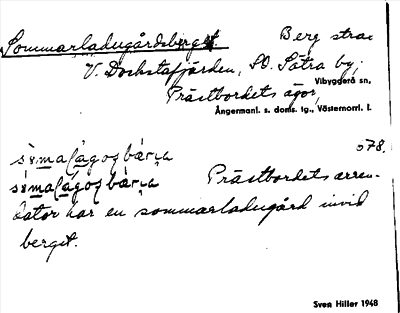 Sommarladugårdsberget. Berg strax
V. Dockstafjärden, SO. Sätra by;
Vibyggerå sn,
Prästbordets ägor,
Ångermanl. s. doms. tg., Västernorrl. l.
078.
Prästbordets arren-
dator har en sommarladugård invid
berget.
Sven Hiller 1948